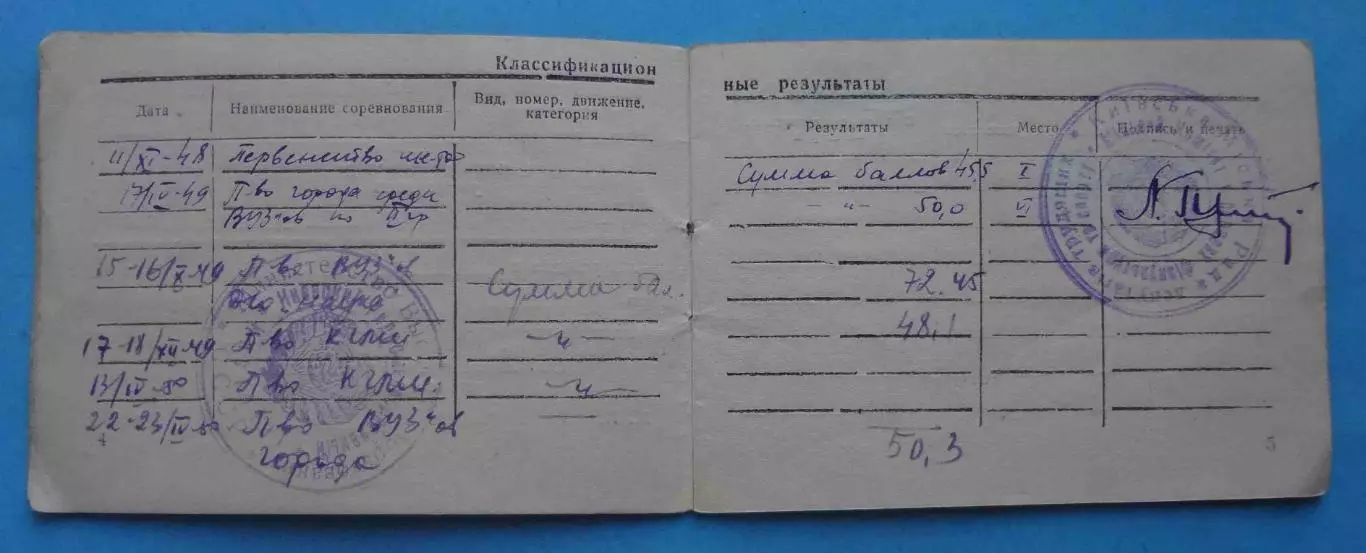 Классификацион
Дата Наименование соревнования Вид, номер, движение, категория
11/XI-48 Первенство
17/IV-49 П-во города среди
ВУЗ'ов по
15-16/X-49 П-во ВУЗ'ов
Сумма бал.
17-18/XII-49 П-во КГМИ -"-
13/IV-50 П-во КГМИ -"-
22-23/IV-50 П-во ВУЗ'ов
города
4
ные результаты
Результаты Место Подпись и печать
Сумма баллов 45,5 I
-"- 50,0 VI
72.45
48,1
50,3
5